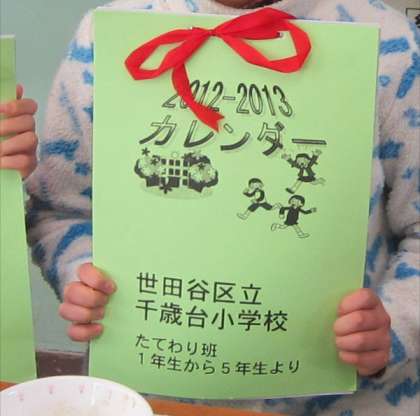 2012-2013
カレンダー
世田谷区立
千歳台小学校
たてわり班
1年生から5年生より